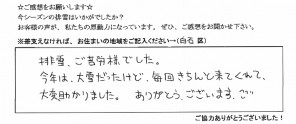 ☆ご感想をお願いします☆
今シーズンの排雪はいかがでしたか?
お客様の声が、私たちの原動力になっています。ぜひ、ご感想をお聞かせ下さい。
※差支えなければ、お住まいの地域をご記入ください→(白石 区)
排雪、ご苦労様でした。
今年は、大雪だったけど、毎回きちんと来てくれて、
大変助かりました。 ありがとうございます。
ご協力ありがとうございました!